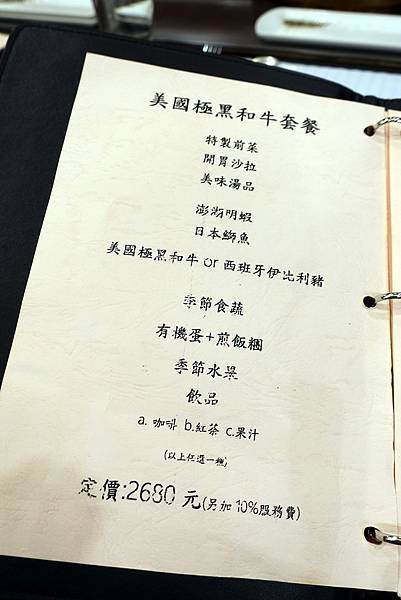 美國極黑和牛套餐
特製前菜
開胃沙拉
美味湯品
澎湖明蝦
日本鰤魚
美國極黑和牛 or 西班牙伊比利豬
季節食蔬
有機蛋+煎飯糰
季節水菓
飲品
a. 咖啡 b.紅茶 c.果汁
(以上任選一種)
定價:2680 元(另加 10%服務費)